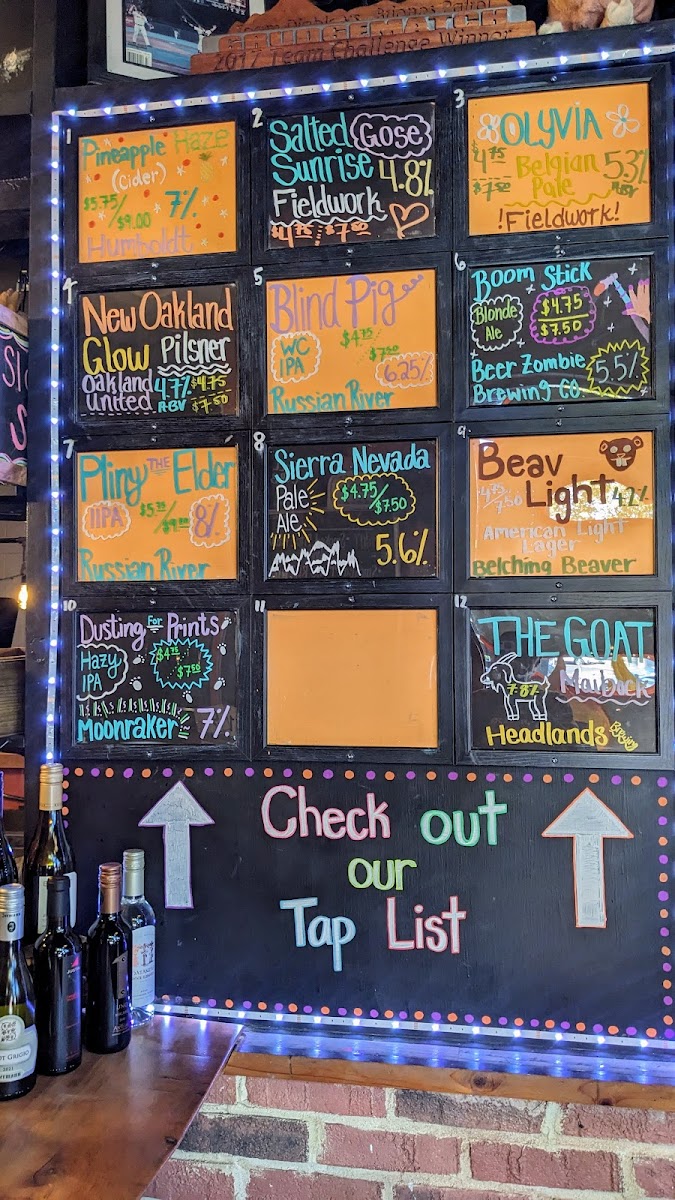 GRUDGEMATCH
2017 Team Challenge Winner
1
Pineapple Haze
(Cider)
$5.75/
$9.00
7%
Humboldt
2
Salted Gose
Sunrise
4.8%
Fieldwork
$4.75 / $7.50
3
OLYVIA
$4.75
$7.50
Belgian
Pale
5.3%
ABV
!Fieldwork!
4
New Oakland
Glow Pilsner
Oakland
United
4.7%
ABV
$4.75
$7.50
5
Blind Pig
WC
IPA
$4.75
$7.50
6.25%
Russian River
6
Boom Stick
Blonde
Ale
$4.75
$7.50
Beer Zombie
Brewing CO.
5.5%
7
Pliny THE Elder
IIPA
8%
Russian River
8
Sierra Nevada
Pale
Ale
$4.75/
$7.50
5.6%
9
Beav
Light
4.75/
7.50
4.2%
American Light
Lager
Belching Beaver
10
Dusting For Prints
Hazy
IPA
$4.75
$7.50
Moonraker
7%
11
12
THE GOAT
7.8%
Maibock
Headlands
Check out
our
Tap List